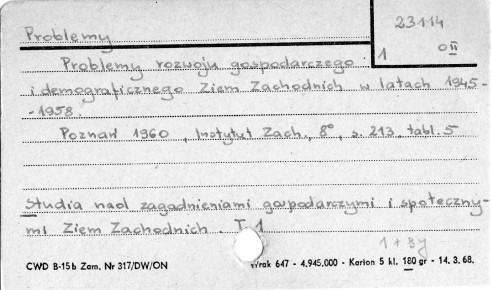 Problemy
23114
1 0 II
Problemy rozwoju gospodarczego
i demograficznego Ziem Zachodnich w latach 1945-
-1958.
Poznań 1960, Instytut Zach., 8°, s. 213, tabl. 5
Studia nad zagadnieniami gospodarczymi i społeczny-
mi Ziem Zachodnich. T. 1
1 + 3y
CWD B-15b Zam. Nr 317/DW/ON Wrak 647 - 4.945.000 - Karton 5 kl. 180 gr - 14. 3. 68.